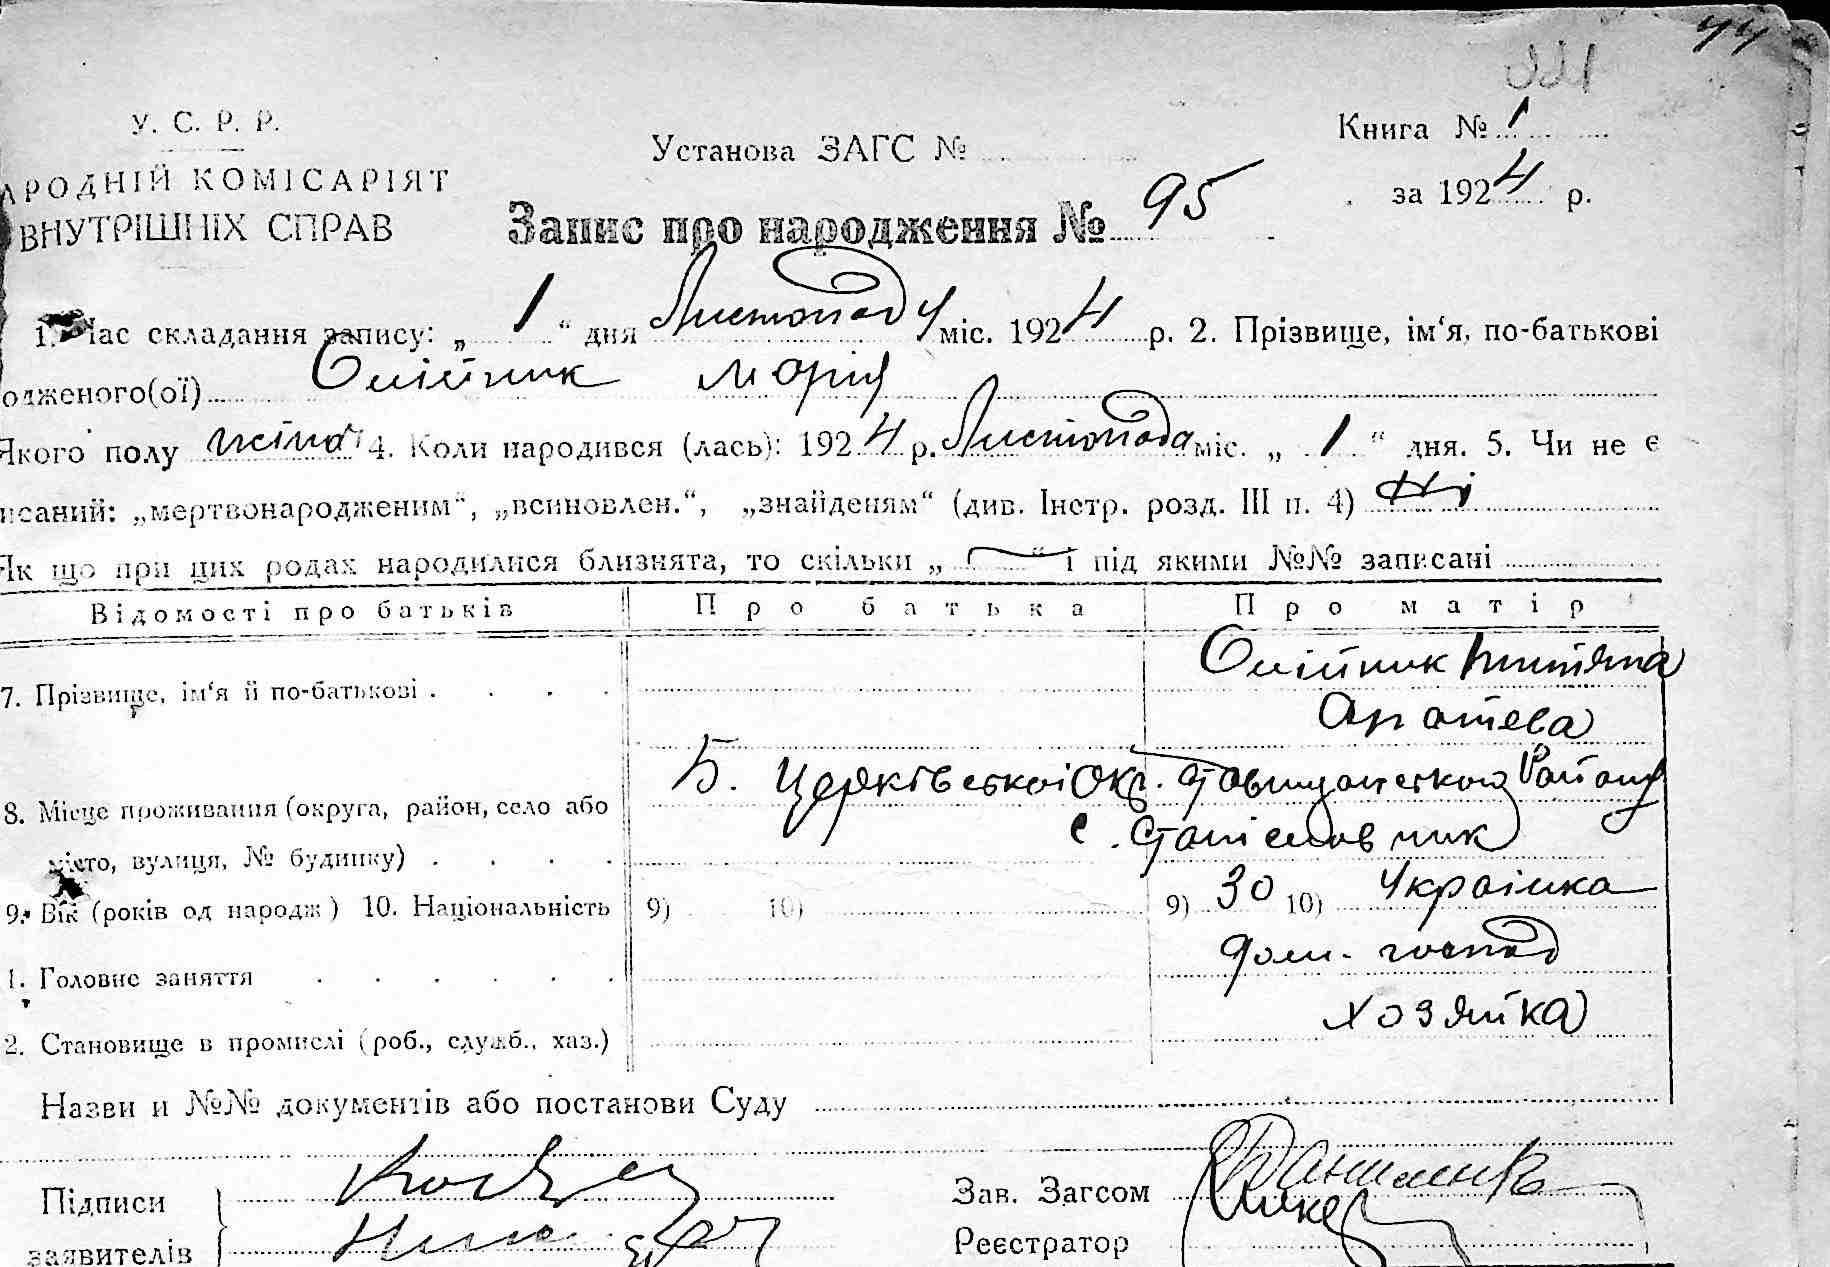 44
У. С. Р. Р.
АРОДНІЙ КОМІСАРІЯТ
ВНУТРІШНІХ СПРАВ
Установа ЗАГС №
Книга № 1
за 1924 р.
Запис про народження № 95
1. Час складання запису: „ 1 “ дня Листопаду міс. 1924 р. 2. Прізвище, ім‘я, по-батькові
одженого(ої) Олійник Марія
Якого полу жіно 4. Коли народився (лась): 1924 р. Листопада міс. „ 1 “ дня. 5. Чи не є
исаний: „мертвонародженим“, „всиновлен.“, „знайденям“ (див. Інстр. розд. III п. 4) Ні
Як що при цих родах народилися близнята, то скільки „ “ і під якими №№ записані
Відомості про батьків Про батька Про матір
7. Прізвище, ім‘я й по-батькові Олійник
Б. Церківської Окр. Ставищанського Району
8. Місце проживання (округа, район, село або
с. Станіславчик
місто, вулиця, № будинку)
9. Вік (років од народж) 10. Національність 9) 10) 9) 30 10) Українка
1. Головне заняття дом. господ
2. Становище в промислі (роб., служб., хаз.) хозяйка
Назви и №№ документів або постанови Суду
Підписи
заявителів
Зав. Загсом Даниленко
Реєстратор